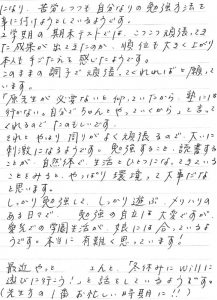 になり、苦労しつつも自分なりの勉強方法を
身に付けようとしているようです。
2学期の期末テストでは、こつこつ頑張ってき
た成果が出てきたのか、順位も大きく上がり
本人も手ごたえを感じたようです。
このままの調子で頑張ってくれればと願って
います。
「原先生が必要ないと仰っていたから、塾には
行かない。自分でちゃんとやっていくから」と言って
くれるのでたのもしいです。
それと やはり 周りがよく頑張るので、大いに
刺激になるようです。勉強すること、読書する
ことが、自然体で、生活のひとつになってきている
ことをみると、やっぱり環境って大事だな
と思います。
しっかり勉強して、しっかり遊ぶ、メリハリの
ある日々で 勉強の自立は大変ですが、
愛光での学園生活が、性には合っている
ようです。本当に有難く思っています!
最近やっと さんと「冬休みにwillに
遊びに行こう!」と話をしているようです。
(先生方の1番お忙しい時期に!!)